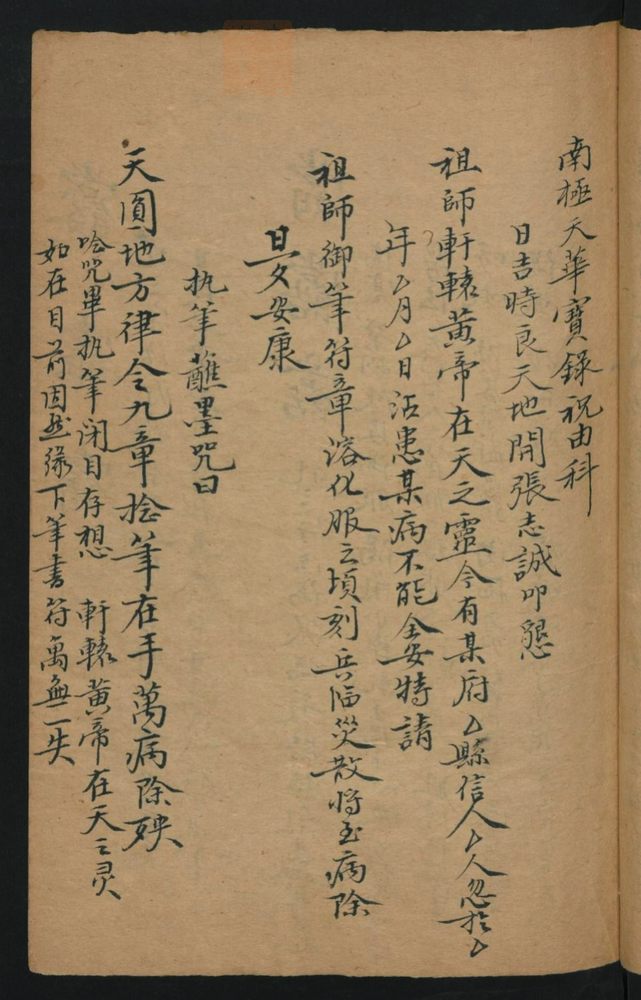 南極天華寶録祝由科
日吉時良天地開張志誠叩懇
祖師軒轅黄帝在天之靈今有某府厶縣信人厶人忽於厶
年厶月厶日沾患某病不能全安特請
祖師御筆符章溶化服之頃刻兵臨災散将至病除
旦夕安康
执筆蘸墨咒曰
天圓地方律令九章捻筆在手萬病除殃
唸咒畢执筆闭目存想 軒轅黄帝在天之灵
如在目前因然缘下筆書符萬無一失